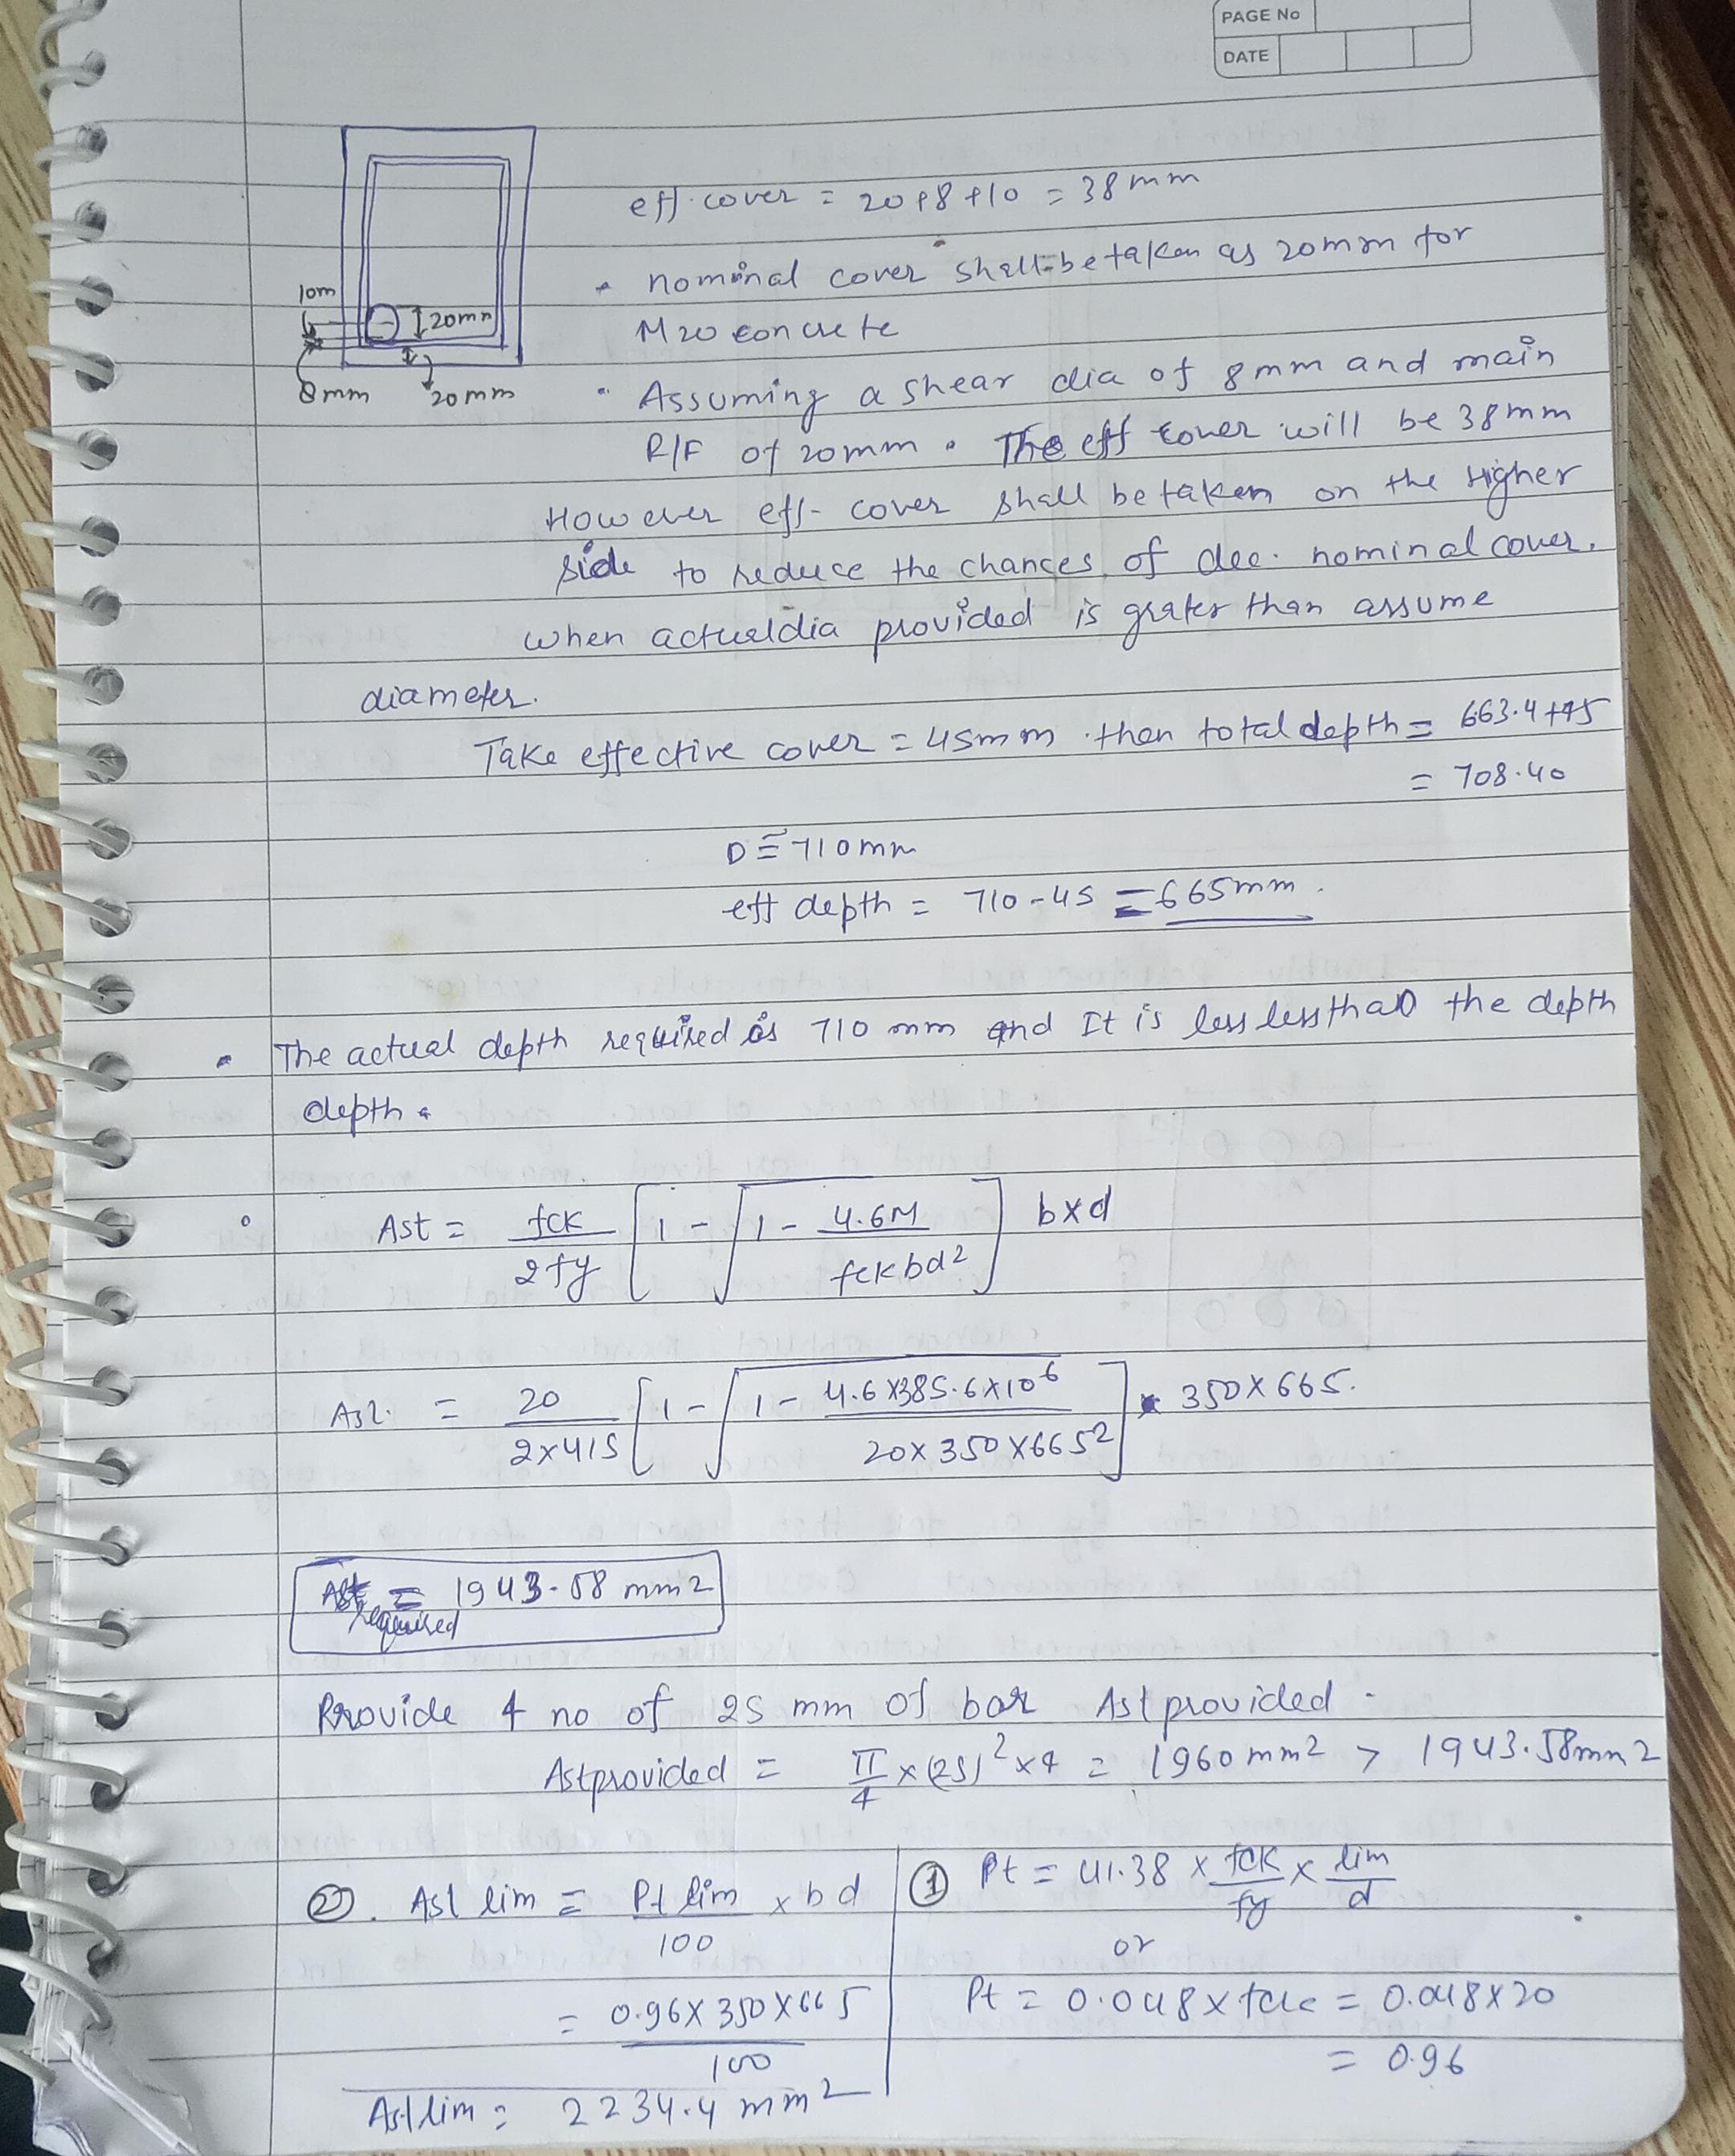 PAGE No
DATE
eff. cover = 20+8+10 = 38mm
• nominal cover shall be taken as 20mm for
M20 concrete
10m
20mm
8mm
20mm
• Assuming a shear dia of 8mm and main
R/F of 20mm. The eff cover will be 38mm
However eff- cover shall be taken on the Higher
side to reduce the chances of dec. nominal cover.
when actual dia provided is grater than assume
diameter.
Take effective cover = 45mm. then total depth = 663.4+45
= 708.40
D ≅ 710mm
eff depth = 710-45 = 665mm.
• The actual depth required is 710 mm and It is less less than the depth
depth.
• Ast = fck/2fy [1 - √1 - 4.6M/fckbd²] b×d
Ast. = 20/2×415 [1 - √1 - 4.6×385.6×10⁶/20×350×665²] × 350×665.
Ast required = 1943.58 mm2
Provide 4 no of 25 mm of bar Ast provided -
Ast provided = π/4 × (25)² × 4 = 1960 mm2 > 1943.58mm2
② . Ast lim = Pt lim/100 × bd
= 0.96×350×665/100
Ast lim = 2234.4 mm2
① Pt = 41.38 × fck/fy × lim/d
or
Pt = 0.048 × fck = 0.048×20
= 0.96